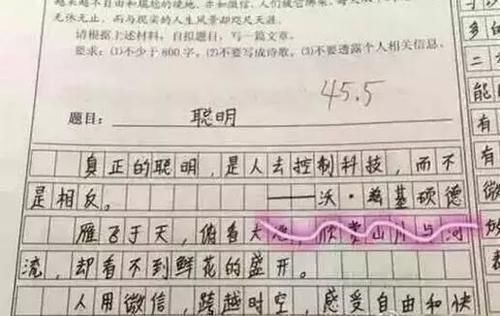 越来越不自由和尴尬的境地，亦如微信，人们被它绑架，
无休无止，而与现实的人生风景却咫尺天涯。
请根据上述材料，自拟题目，写一篇文章。
要求：(1)不少于800字，(2)不要写成诗歌，(3)不要透露个人相关信息。
45.5
题目： 聪明
真正的聪明，是人去控制科技，而不
是相反。 ——沃·兹基硕德
雁飞于天，俯看大地，欣赏山川与河
流，却看不到鲜花的盛开。
人用微信，跨越时空，感受自由和快
多
的
二
能
有
有
微